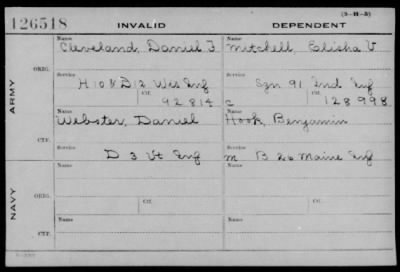 (3-H-5)
126518 INVALID DEPENDENT
ARMY
ORIG.
Name Name
Cleveland, Daniel F. Mitchell, Elisha V
Service Service
H 10 & D 12 Wis Inf Sgn 91 Ind Inf
Ctf. Ctf.
92 814 C 128 998
CTF.
Name Name
Webster, Daniel Hook, Benjamin
Service Service
D 3 Vt Inf M B 26 Maine Inf
NAVY
ORIG.
Name Name
Ctf. Ctf.
CTF.
Name Name